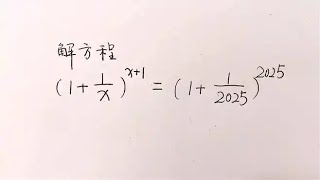 解方程
(1+1/x)^{x+1} = (1+1/2025)^{2025}